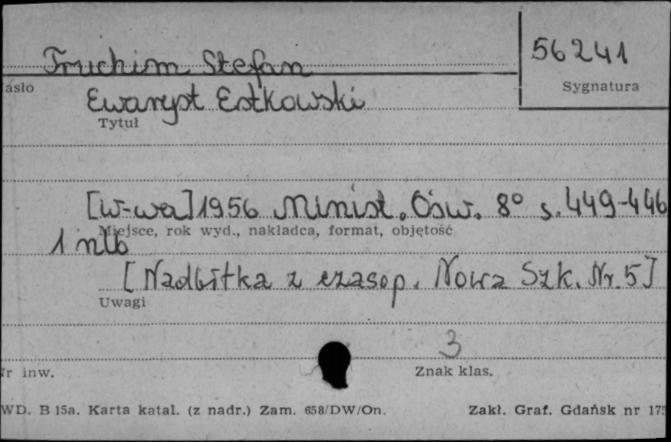 56241
Truchim Stefan
asło
Sygnatura
Ewaryst Estkowski
Tytuł
[W-wa] 1956 Minist. Ośw. 8° s. 449-446
Miejsce, rok wyd., nakładca, format, objętość
1 nlb
[Nadbitka z czasop. Nowa Szk. Nr. 5]
Uwagi
3
r inw.
Znak klas.
WD. B 15a. Karta katal. (z nadr.) Zam. 658/DW/On.
Zakł. Graf. Gdańsk nr 175